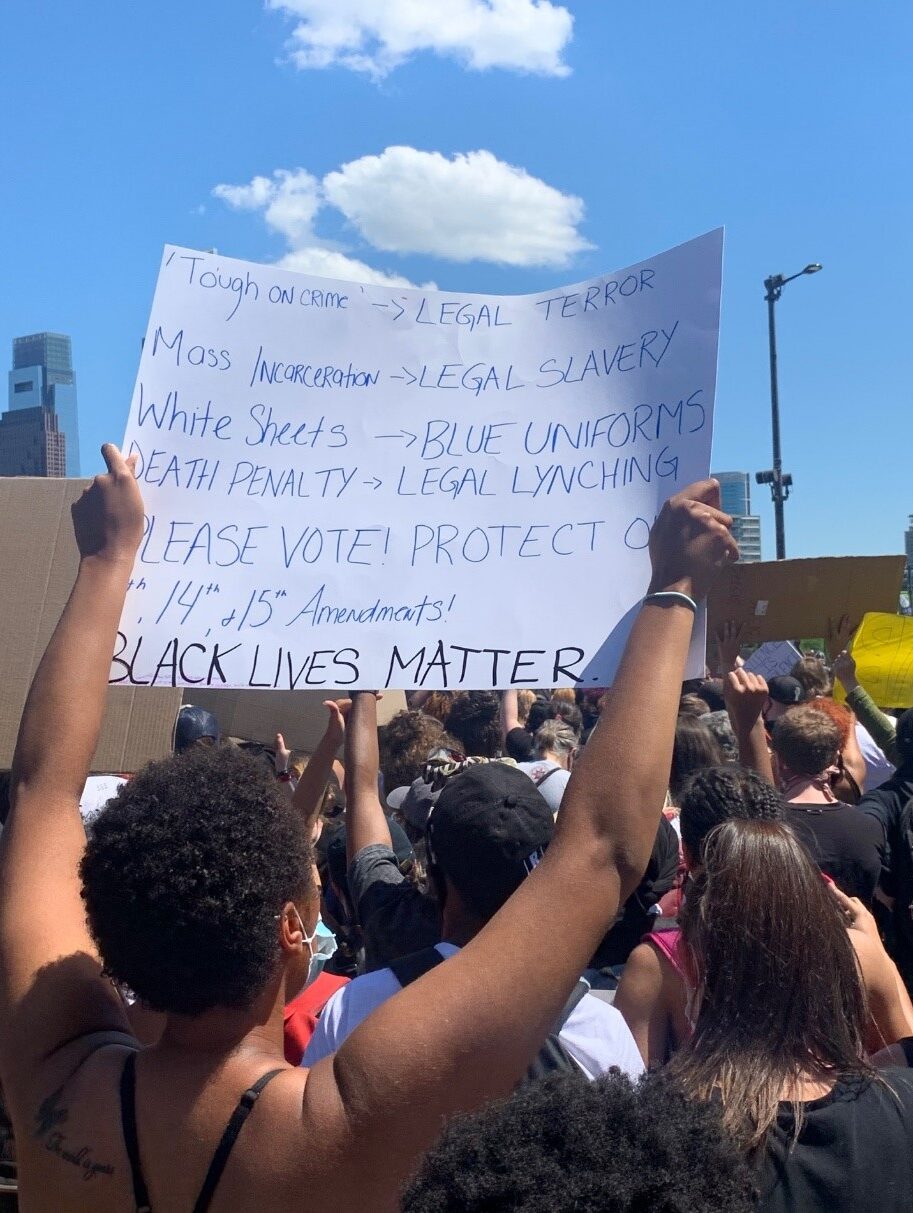 'Tough ON CRIME' -> LEGAL TERROR
Mass INCARCERATION -> LEGAL SLAVERY
White Sheets -> BLUE UNIFORMS
DEATH PENALTY -> LEGAL LYNCHING
PLEASE VOTE! PROTECT O
th, 14th, & 15th Amendments!
BLACK LIVES MATTER.